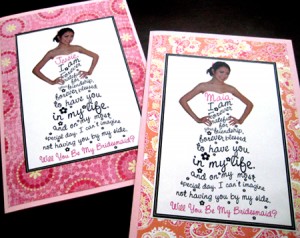 I am
forever
grateful
for
friendship,
forever blessed
to have you
in my life.
and on my most
special day, I can't imagine
not having you by my side.
Will You Be My Bridesmaid?
I am
forever
grateful
for
friendship,
forever blessed
to have you
in my life.
and on my most
special day, I can't imagine
not having you by my side.
Will You Be My Bridesmaid?